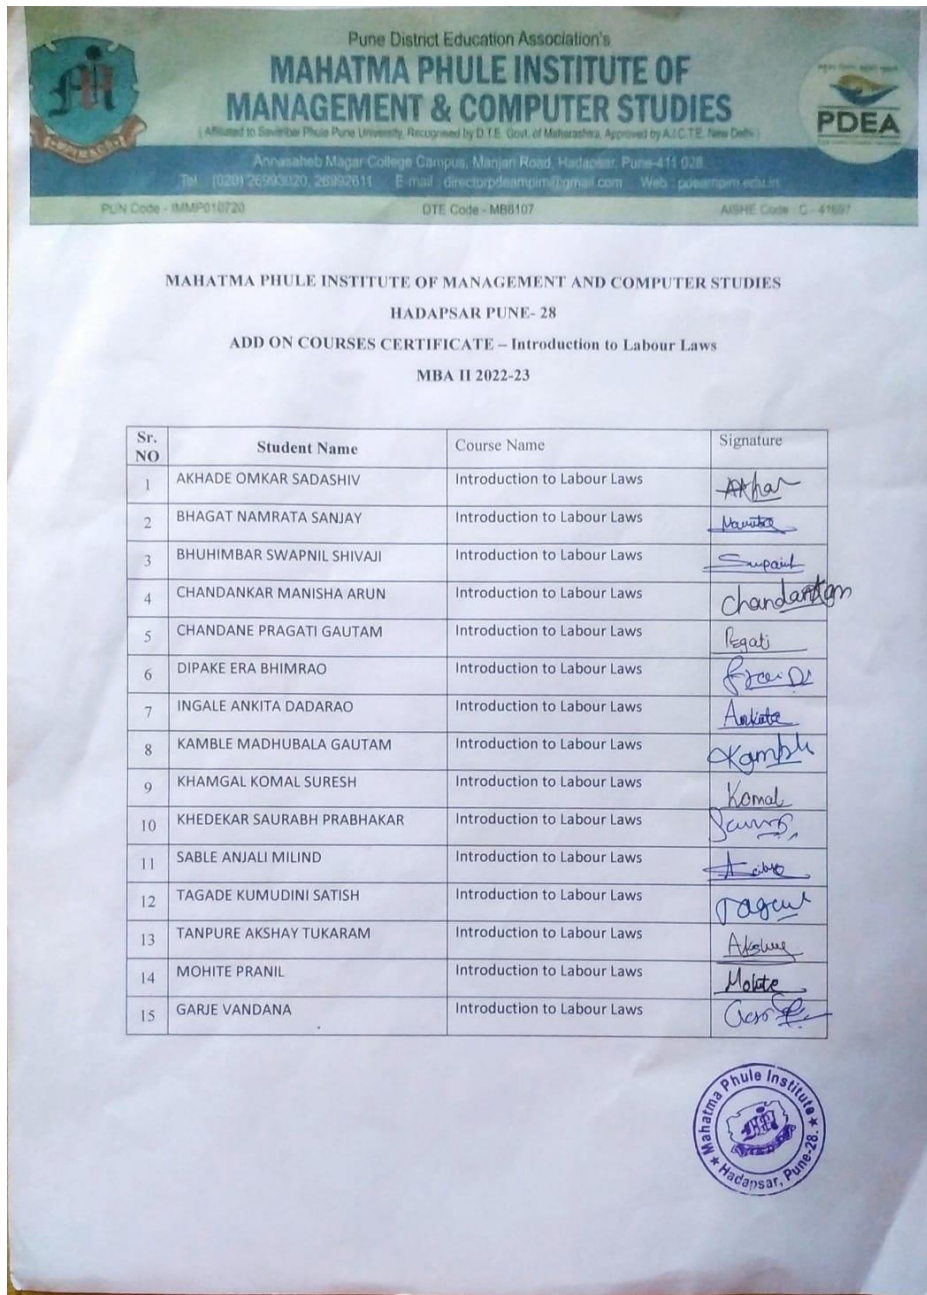 Pune District Education Association's
MAHATMA PHULE INSTITUTE OF
MANAGEMENT & COMPUTER STUDIES
( Affiliated to Savitribai Phule Pune University, Recognised by D.T.E. Govt. of Maharashtra, Approved by A.I.C.T.E. New Delhi )
PDEA
Annasaheb Magar College Campus, Manjari Road, Hadapsar, Pune-411 028.
Tel : (020) 26993020, 26992611 E-mail : directorpdeampim@gmail.com Web : pdeampim.edu.in
PUN Code - IMMP010720 DTE Code - MB6107 AISHE Code : C - 41697
MAHATMA PHULE INSTITUTE OF MANAGEMENT AND COMPUTER STUDIES
HADAPSAR PUNE- 28
ADD ON COURSES CERTIFICATE – Introduction to Labour Laws
MBA II 2022-23
Sr. NO Student Name Course Name Signature
1 AKHADE OMKAR SADASHIV Introduction to Labour Laws
2 BHAGAT NAMRATA SANJAY Introduction to Labour Laws
3 BHUHIMBAR SWAPNIL SHIVAJI Introduction to Labour Laws
4 CHANDANKAR MANISHA ARUN Introduction to Labour Laws
5 CHANDANE PRAGATI GAUTAM Introduction to Labour Laws
6 DIPAKE ERA BHIMRAO Introduction to Labour Laws
7 INGALE ANKITA DADARAO Introduction to Labour Laws Ankita
8 KAMBLE MADHUBALA GAUTAM Introduction to Labour Laws
9 KHAMGAL KOMAL SURESH Introduction to Labour Laws Komal
10 KHEDEKAR SAURABH PRABHAKAR Introduction to Labour Laws
11 SABLE ANJALI MILIND Introduction to Labour Laws
12 TAGADE KUMUDINI SATISH Introduction to Labour Laws
13 TANPURE AKSHAY TUKARAM Introduction to Labour Laws
14 MOHITE PRANIL Introduction to Labour Laws
15 GARJE VANDANA Introduction to Labour Laws
Mahatma Phule Institute
Hadapsar, Pune-28.